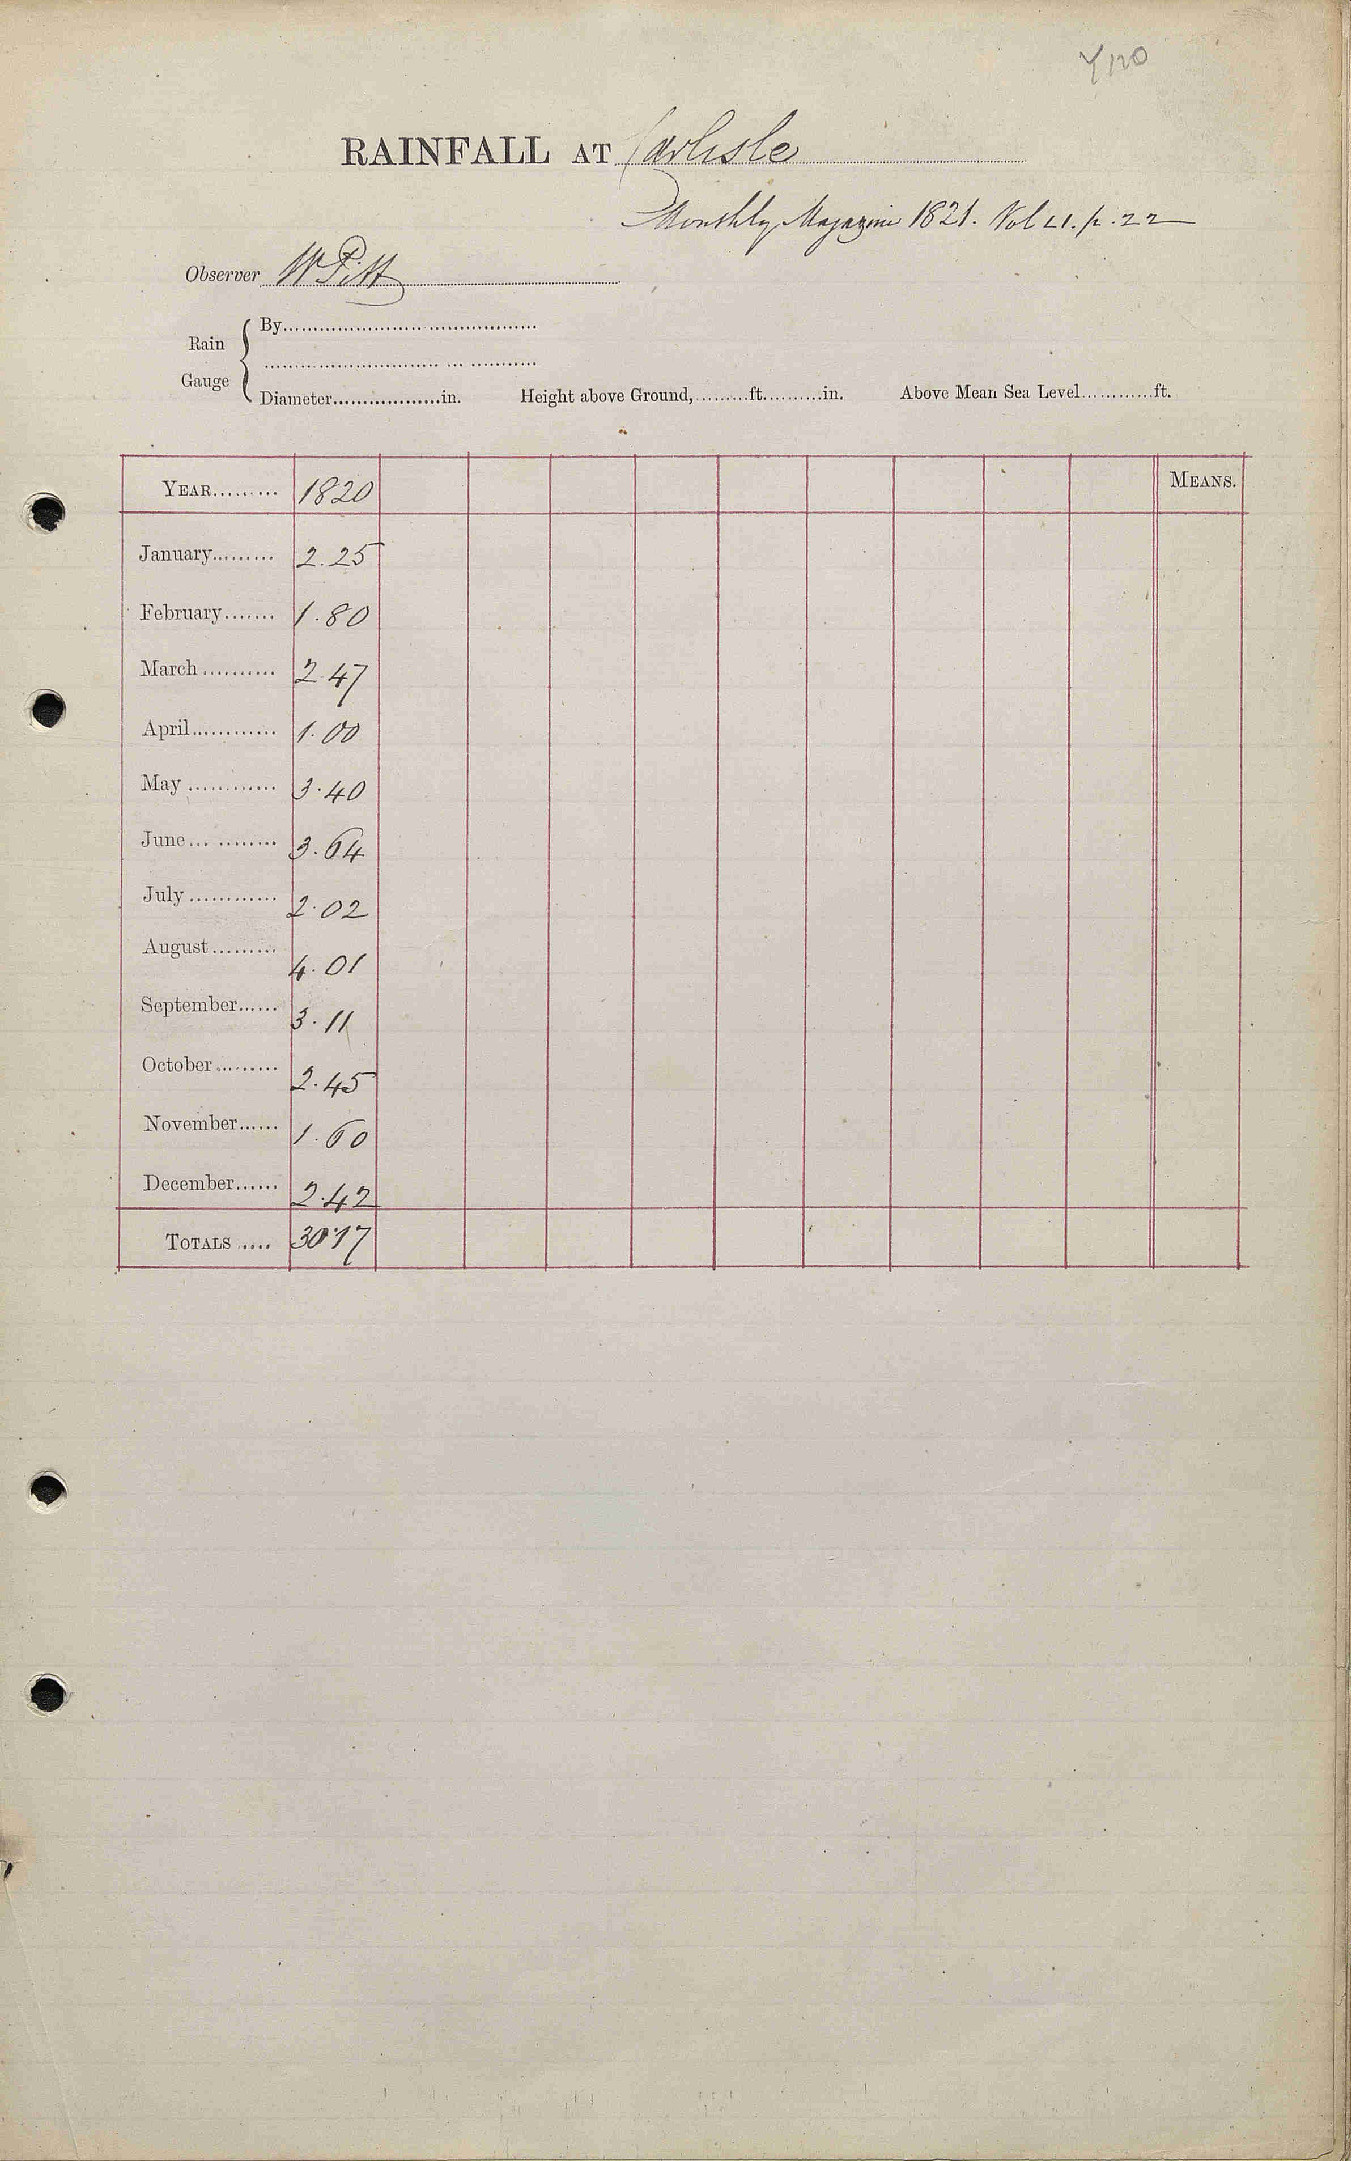 RAINFALL AT Carlisle
Monthly Magazine 1821. Vol 41. p. 22
Observer W Pitt
Rain Gauge
By
Diameter in. Height above Ground, ft. in. Above Mean Sea Level ft.
YEAR 1820 MEANS.
January 2.25
February 1.80
March 2.47
April 1.00
May 3.40
June 3.64
July 2.02
August 4.01
September 3.11
October 2.45
November 1.60
December 2.42
TOTALS 30.17